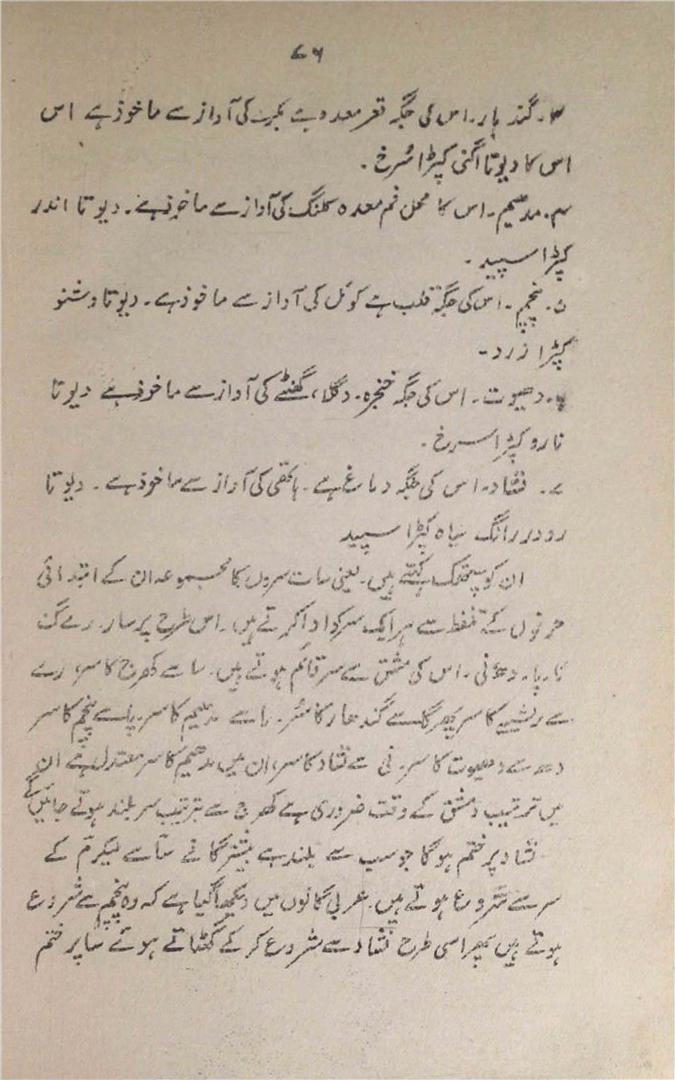 ۷۶
۳۔ گندہار۔ اس کی جگہ قعر معدہ ہے بکری کی آواز سے ماخوذ ہے اس
اس کا دیوتا اگنی کپڑا سُرخ۔
۴۔ مدھیم۔ اس کا محل فم معدہ کلنگ کی آواز سے ماخوذ ہے۔ دیوتا اندر
کپڑا سپید۔
۵۔ پنچم۔ اس کی جگہ قلب ہے کوئل کی آواز سے ماخوذ ہے۔ دیوتا وشنو
کپڑا زرد۔
۶۔ دھیوت۔ اس کی جگہ حنجرہ۔ دگلا، گھنٹے کی آواز سے ماخوذ ہے دیوتا
نارو کپڑا سرخ۔
۷۔ نشاد۔ اس کی جگہ دماغ ہے۔ ہاتھی کی آواز سے ماخوذ ہے۔ دیوتا
رودر رانگ سیاہ کپڑا سپید
ان کو سپتک کہتے ہیں۔ یعنی سات سروں کا مجموعہ ان کے ابتدائی
حرفوں کے تلفظ سے ہر ایک سر کو ادا کرتے ہیں۔ اس طرح پر سا۔ رے گا
ما۔ پا۔ دھا نی۔ اس کی مشق سے سر قائم ہوتے ہیں۔ سا سے کھرج کا سر، رے
سے رشبہ کا سر پھر گا سے گندھار کا سُر۔ ما سے مدھیم کا سر۔ پا سے پنچم کا سر
دھ سے دھیوت کا سر۔ نی سے نشاد کا سر، ان میں مدھیم کا سر معتدل ہے ان
میں ترتیب و مشق کے وقت ضروری ہے کھرج سے بترتیب سر بلند ہوتے جائیں گے
نشاد پر ختم ہوگا جو سب سے بلند ہے بیشتر گانے سا سے لیکر م کے
سر سے شروع ہوتے ہیں۔ عربی گانوں میں دیکھا گیا ہے کہ وہ پنچم سے شروع
ہوتے ہیں پھر اسی طرح نشاد سے شروع کر کے گھٹاتے ہوئے سا پر ختم